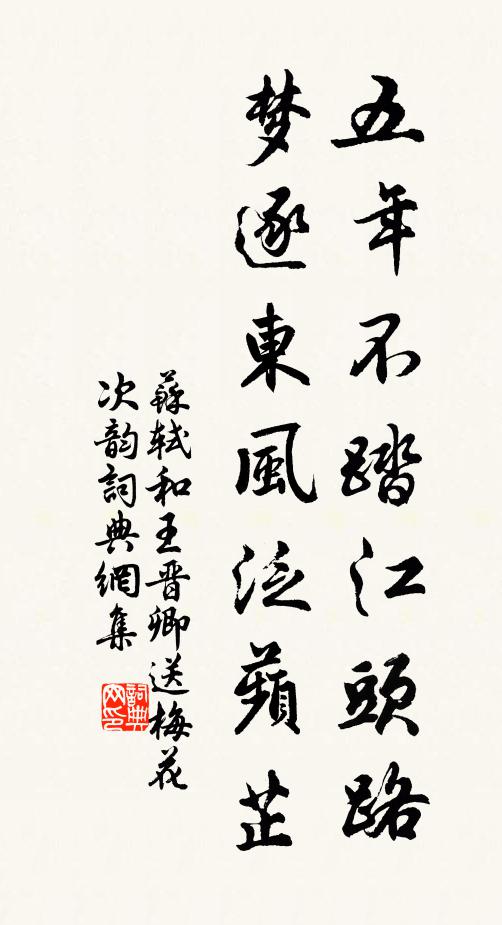 五年不踏江頭路
梦逐東風泛蘋芷
蘇軾和王晋卿送梅花
次韵詞典網集
詞典
网印